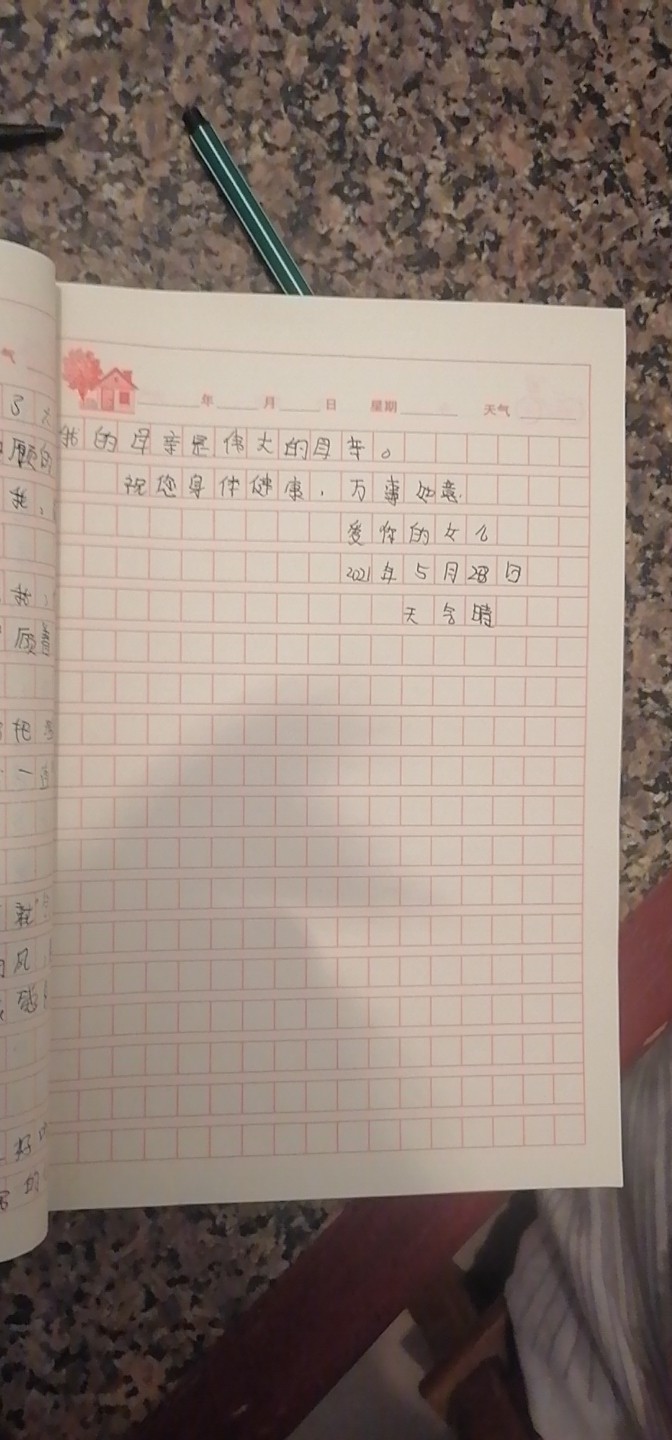 年 月 日 星期 天气
我的母亲是伟大的母亲。
祝您身体健康，万事如意.
爱你的女儿
2021年5月28日
天含晴
气
了
愿的
我，
我，
顾着
把
一
就
风
感
好
的